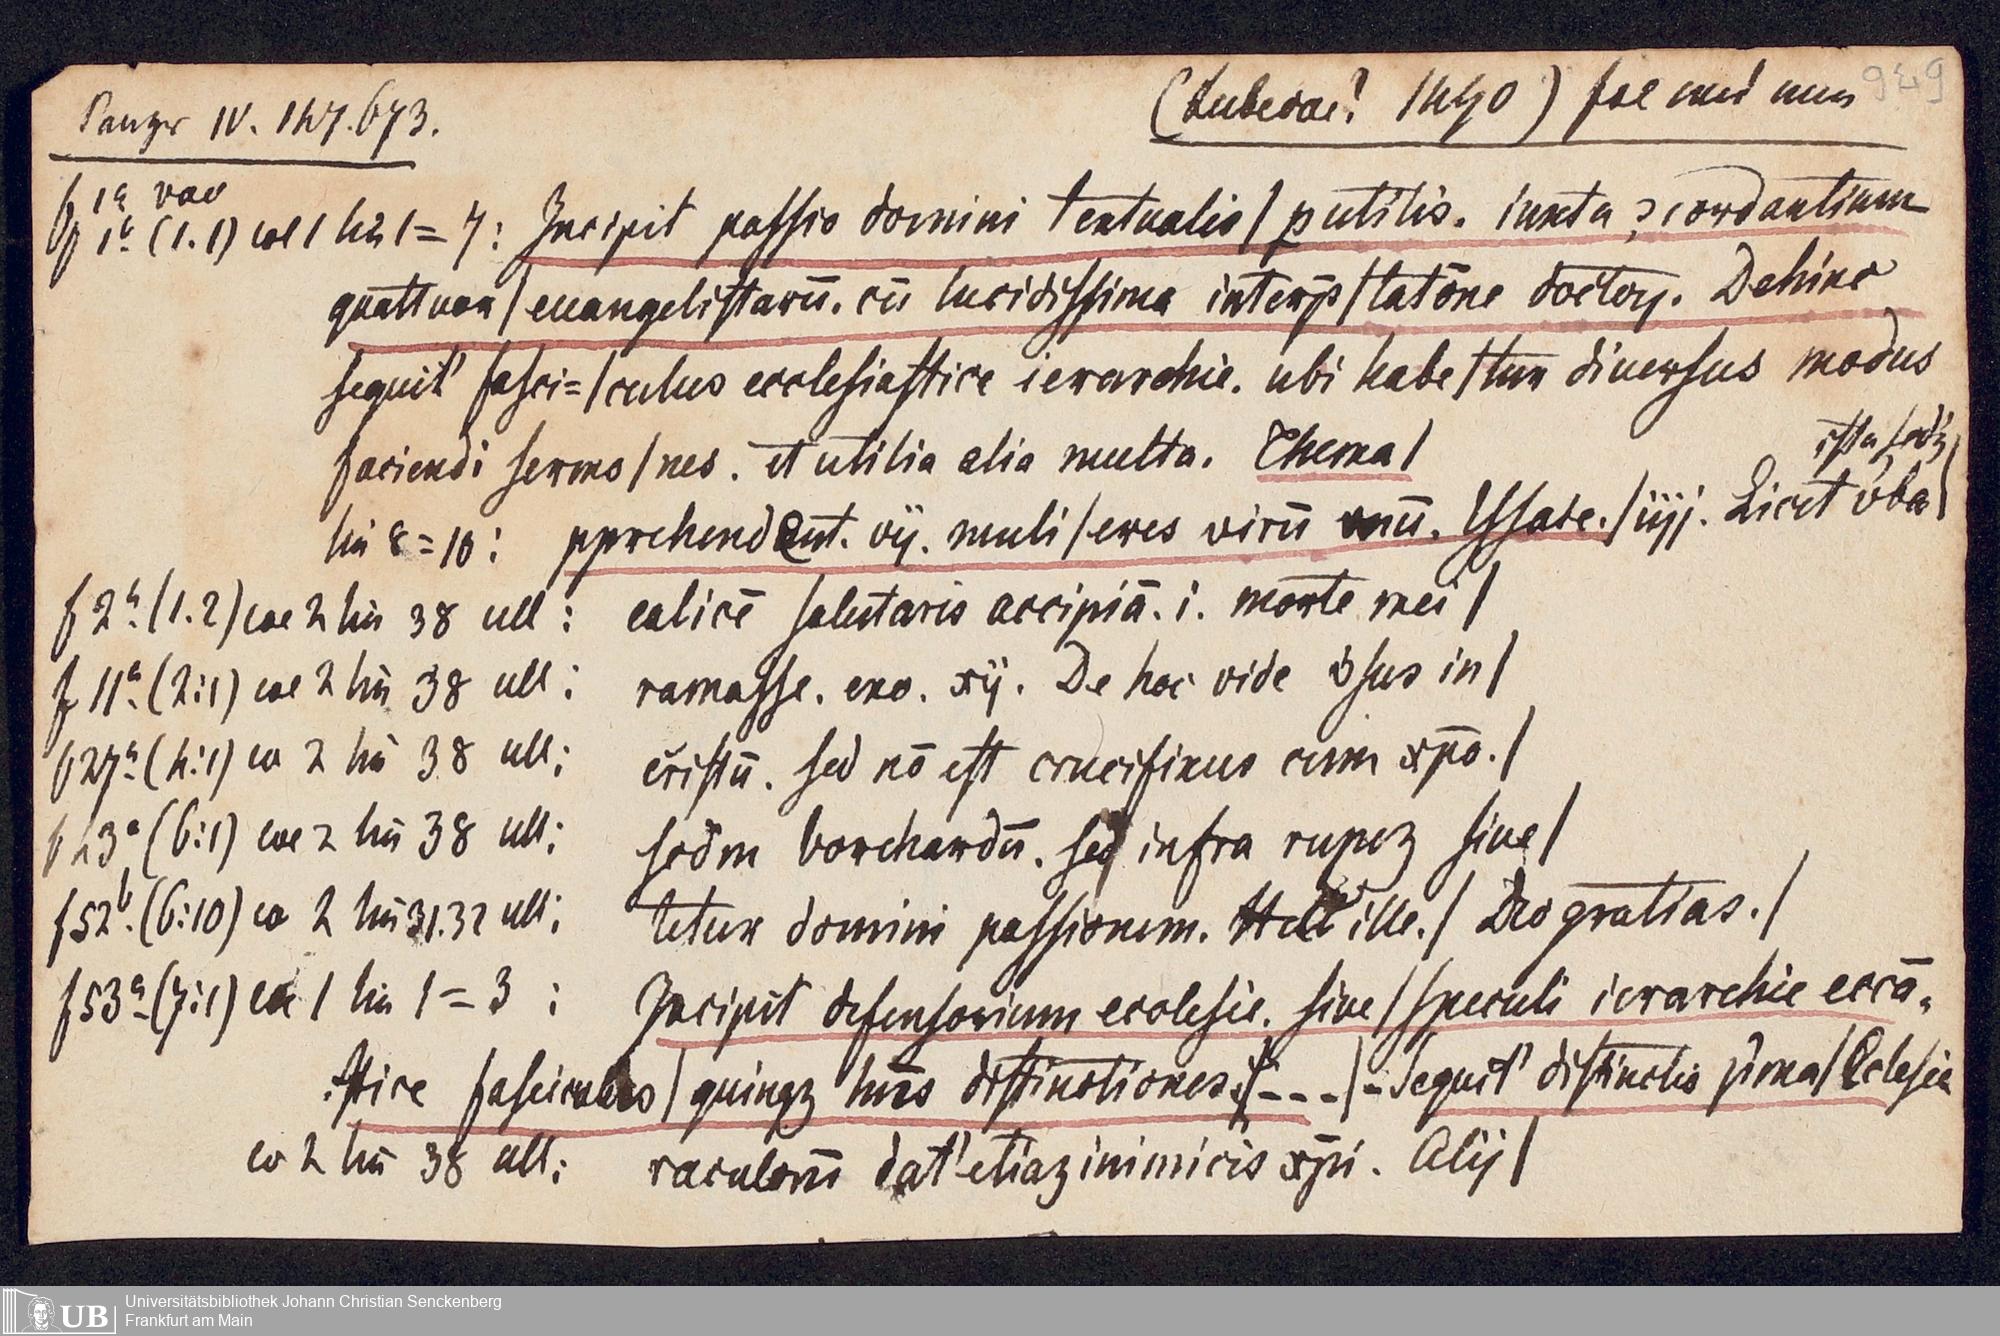 Panzer IV. 147.673.
(Lubecae? 1490) fol
949
f 1a vac
f 1b (1.1) col 1 lin 1=7: Incipit passio domini textualis / p utilis. iuxta ꝯcordantium
quattuor / euangelistarū. cū lucidissima interp̄ / tatōne doctoꝝ. Dehinc
sequit' fasci= / culus ecclesiastice ierarchie. ubi habe / tur diuersus modus
faciendi sermo / nes. et utilia alia multa. Thema /
ista
lin 8=10: pprehendent. vij. muli / eres virū unū. Ysaie. / iiij. Licet v̄ba /
f 2b (1.2) col 2 lin 38 ult: calicē salutaris accipiā. i. mortē mei /
f 11a (2:1) col 2 lin 38 ult: ramasse. exo. xij. De hoc vide v̄sus in /
f 27a (4:1) co 2 lin 38 ult: c̄ristū. sed nō est crucifixus cum xp̄o. /
f 43a (6:1) col 2 lin 38 ult: scd̄m borchardū. sed infra rupeꝫ siue /
f 52b (6:10) co 2 lin 31.32 ult: letur domini passionem. ille. / Deo gratias. /
f 53a (7:1) col 1 lin 1=3: Incipit defensorium ecclesie. siue / speculi ierarchie eccā=
stice fasciculus / quinqꝫ hn̄s distinctiones. / - - - / - Sequit' distinctio p̄ma / Eclesie
co 2 lin 38 ult: raculorū dat' etiaꝫ inimicis xp̄i. Alij /
UB
Universitätsbibliothek Johann Christian Senckenberg
Frankfurt am Main